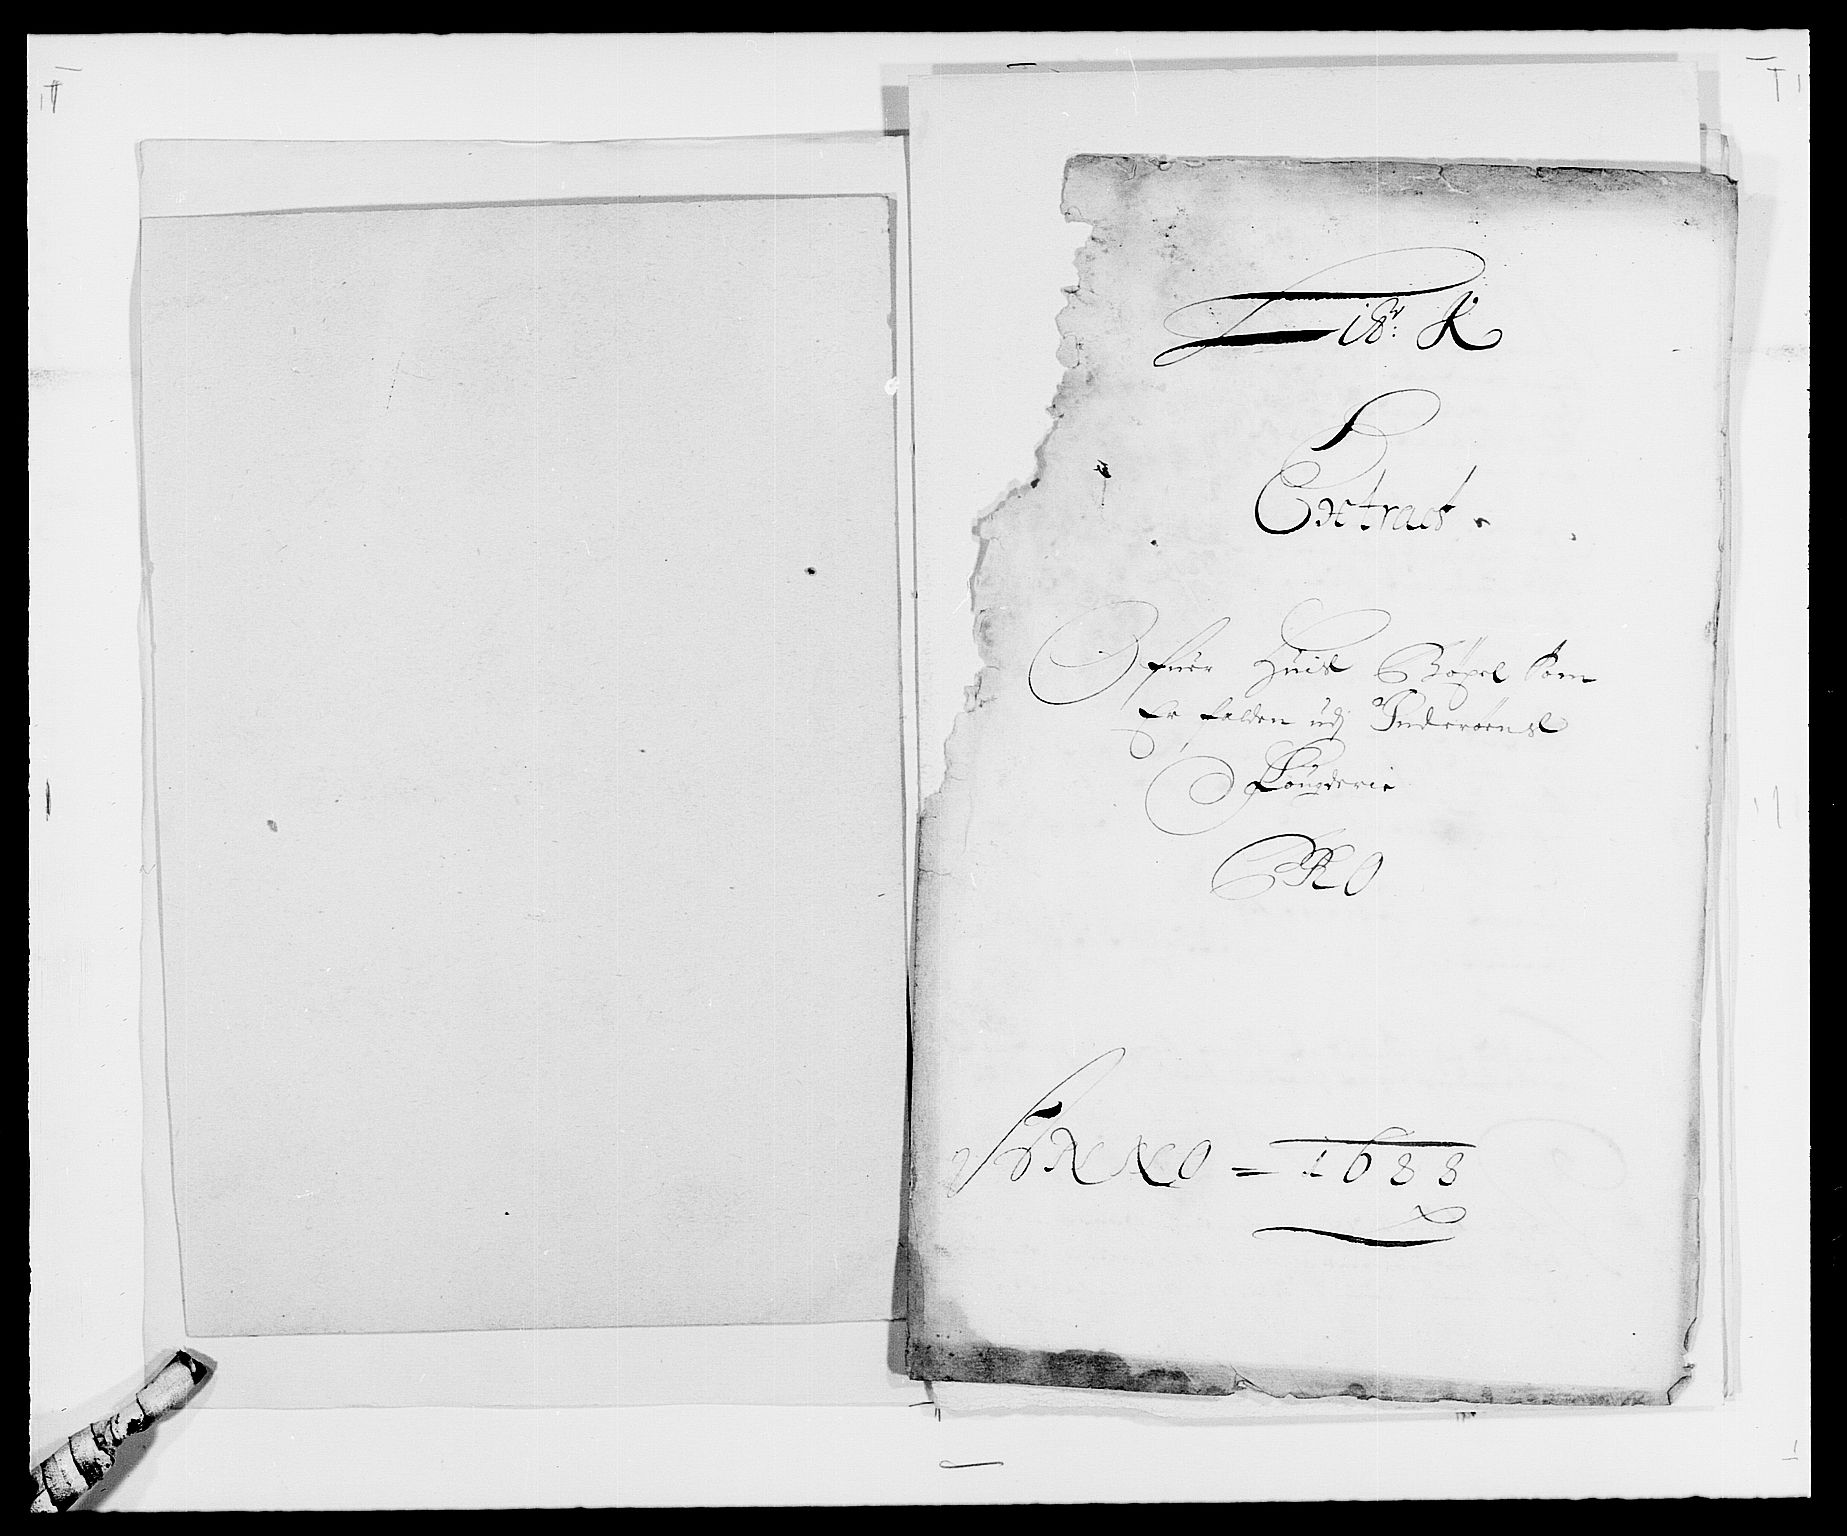 Litr: K
Extract
Ofuer Huis Bøxel som
Er falden udj Inderøens
Fougderie
PRO
ANNO = 1688